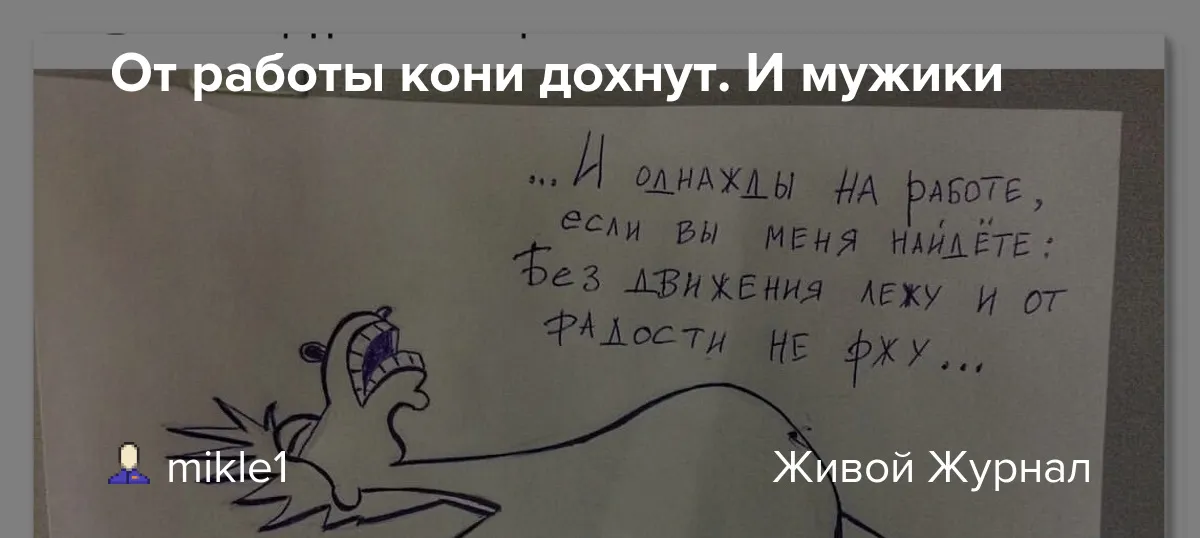 От работы кони дохнут. И мужики
...И однажды на работе,
если вы меня найдёте:
Без движения лежу и от
радости не ржу...
mikle1
Живой Журнал